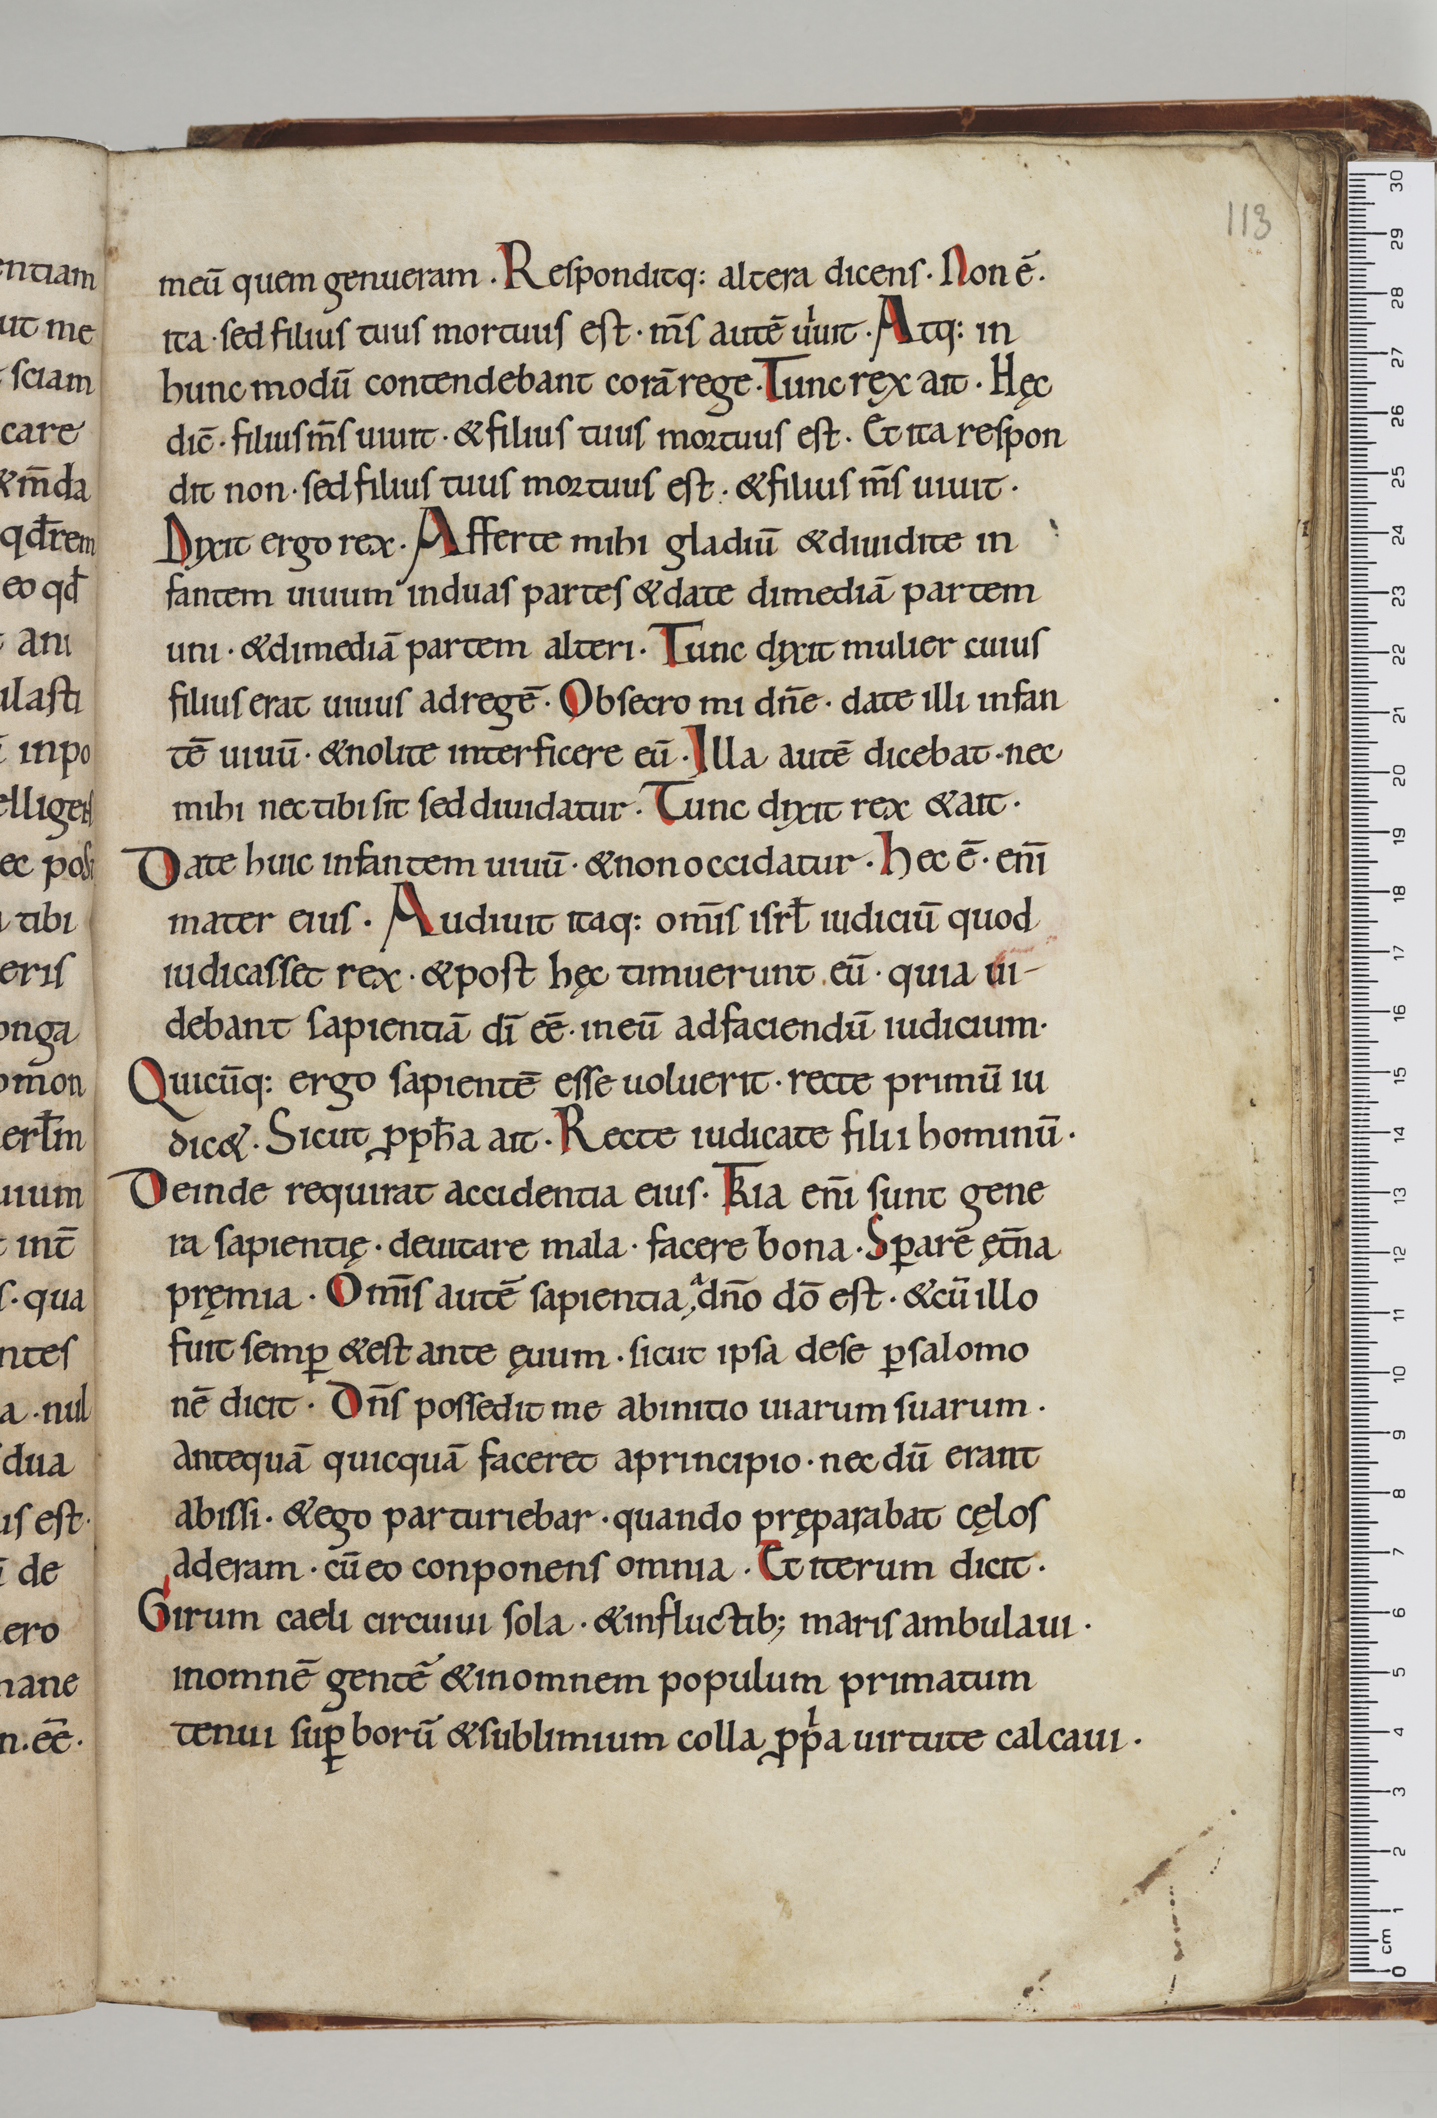 113
meū quem genueram · Responditq: altera dicens · Non ē ·
ita · sed filius tuus mortuus est · m̄s autē uiuit · Atq: in
hunc modū contendebant corā rege · Tunc rex ait · Hęc
dic̄ · filius m̄s uiuit · & filius tuus mortuus est · Et ita respon
dit non · sed filius tuus mortuus est · & filius m̄s uiuit ·
Dixit ergo rex · Afferte mihi gladiū & diuidite in
fantem uiuum in duas partes & date dimediā partem
uni · & dimediā partem alteri · Tunc dixit mulier cuius
filius erat uiuus ad regē · Obsecro mi dn̄e · date illi infan
tē uiuū · & nolite interficere eū · Illa autē dicebat · nec
mihi nec tibi sit sed diuidatur · Tunc dixit rex & ait ·
Date huic infantem uiuū · & non occidatur · Hec ē · eni̅
mater eius · Audiuit itaq: om̄is isrł iudiciū quod
iudicasset rex · & post hęc timuerunt eū · quia ui-
debant sapientiā dī eē · in eū ad faciendū iudicium ·
Quicūq: ergo sapientē esse uoluerit · recte primū iu
dic& · Sicut ꝓph̄a ait · Recte iudicate filii hominū ·
Deinde requirat accidentia eius · Tria eni̅ sunt gene
ra sapientię · deuitare mala · facere bona · Sperarē ęt̄na
pręmia · Om̄is autē sapientia a dn̄o dō est · & cū illo
fuit semꝑ & est ante ęuum · sicut ipsa de se ꝑ salomo
nē dicit · Dn̄s possedit me ab initio uiarum suarum ·
antequā quicquā faceret a principio · nec dū erant
abissi · & ego parturiebar · quando pręparabat cęlos
aderam · cū eo conponens omnia · Et iterum dicit ·
Girum caeli circuiui sola · & in fluctib; maris ambulaui ·
in omnē gentē & in omnem populum primatum
tenui suꝑborū & sublimium colla ꝓpⁱa uirtute calcaui ·